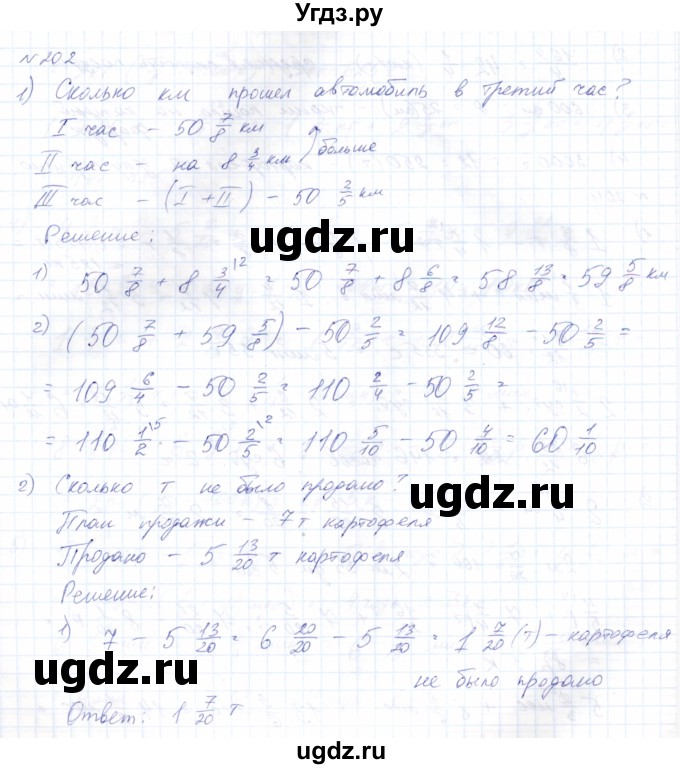 Угдз.ру
№ 202
1) Сколько км прошел автомобиль в третий час?
I час – 50 7/8 км
II час – на 8 3/4 км больше
III час – (I + II) – 50 2/5 км
ugdz.ru
Решение:
1) 50 7/8 + 8 3/4\2 = 50 7/8 + 8 6/8 = 58 13/8 = 59 5/8 км
2) (50 7/8 + 59 5/8) – 50 2/5 = 109 12/8 – 50 2/5 =
= 109 6/4 – 50 2/5 = 110 2/4 – 50 2/5 =
= 110 1/2\5 – 50 2/5\2 = 110 5/10 – 50 4/10 = 60 1/10
2) Сколько т не было продано?
ugdz.ru
План продажи – 7 т картофеля
Продано – 5 13/20 т картофеля
Решение:
1) 7 – 5 13/20 = 6 20/20 – 5 13/20 = 1 7/20 (т) – картофеля
ugdz.ru
не было продано
Ответ: 1 7/20 т
ugdz.ru